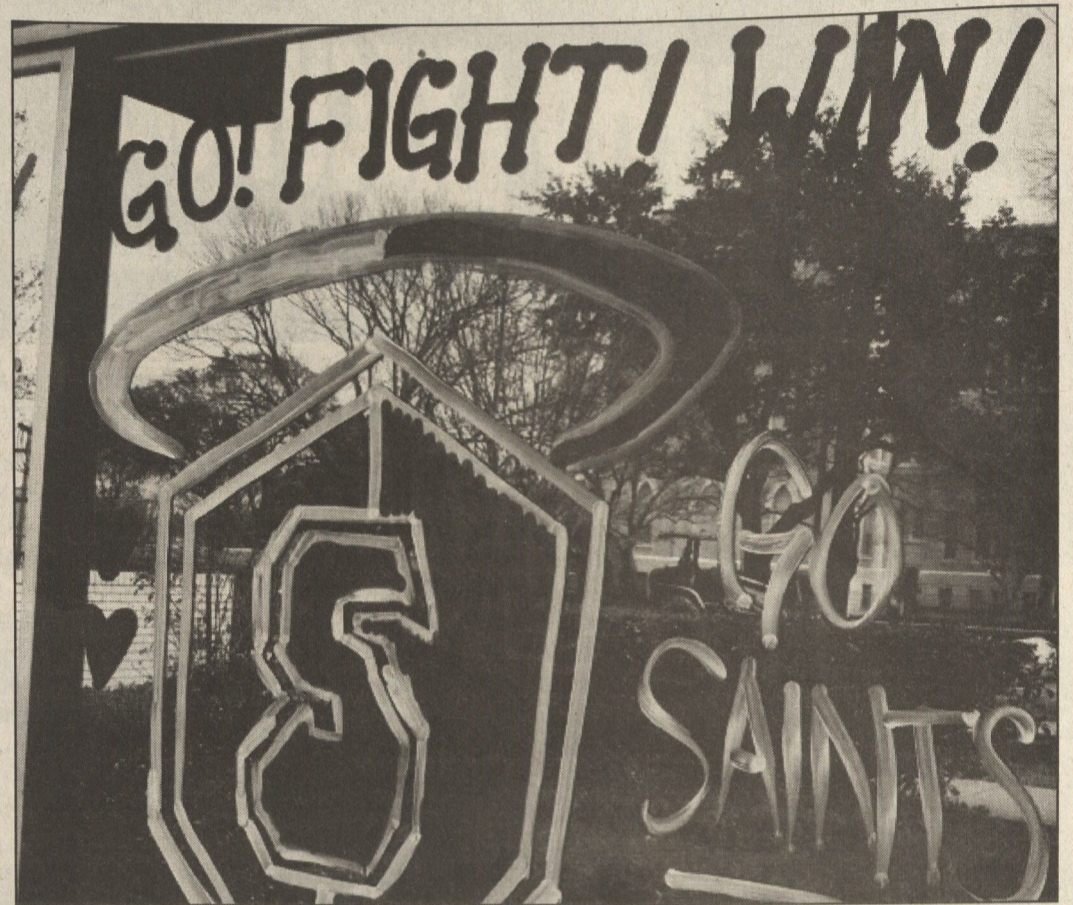 GO! FIGHT! WIN!
S
GO
SAINTS